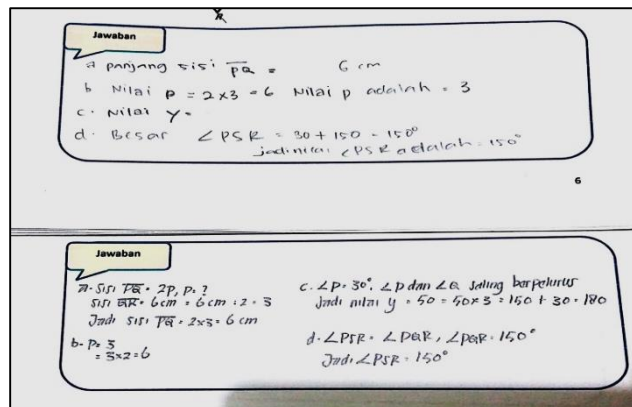 Jawaban
a panjang sisi PQ = 6 cm
b Nilai P = 2x3 = 6 Nilai p adalah = 3
c. Nilai y =
d. Besar ∠PSR = 30 + 150 = 150°
jadi nilai ∠PSR adalah = 150°
6
Jawaban
a. sisi PQ = 2P, P = ?
sisi QR = 6 cm = 6 cm : 2 = 3
Jadi sisi PQ = 2x3 = 6 cm
b. P = 3
= 3x2 = 6
c. ∠P = 30°. ∠P dan ∠Q saling berpelurus
Jadi nilai y = 50 = 50x3 = 150 + 30 = 180
d. ∠PSR = ∠PQR, ∠PQR = 150°
Jadi ∠PSR = 150°